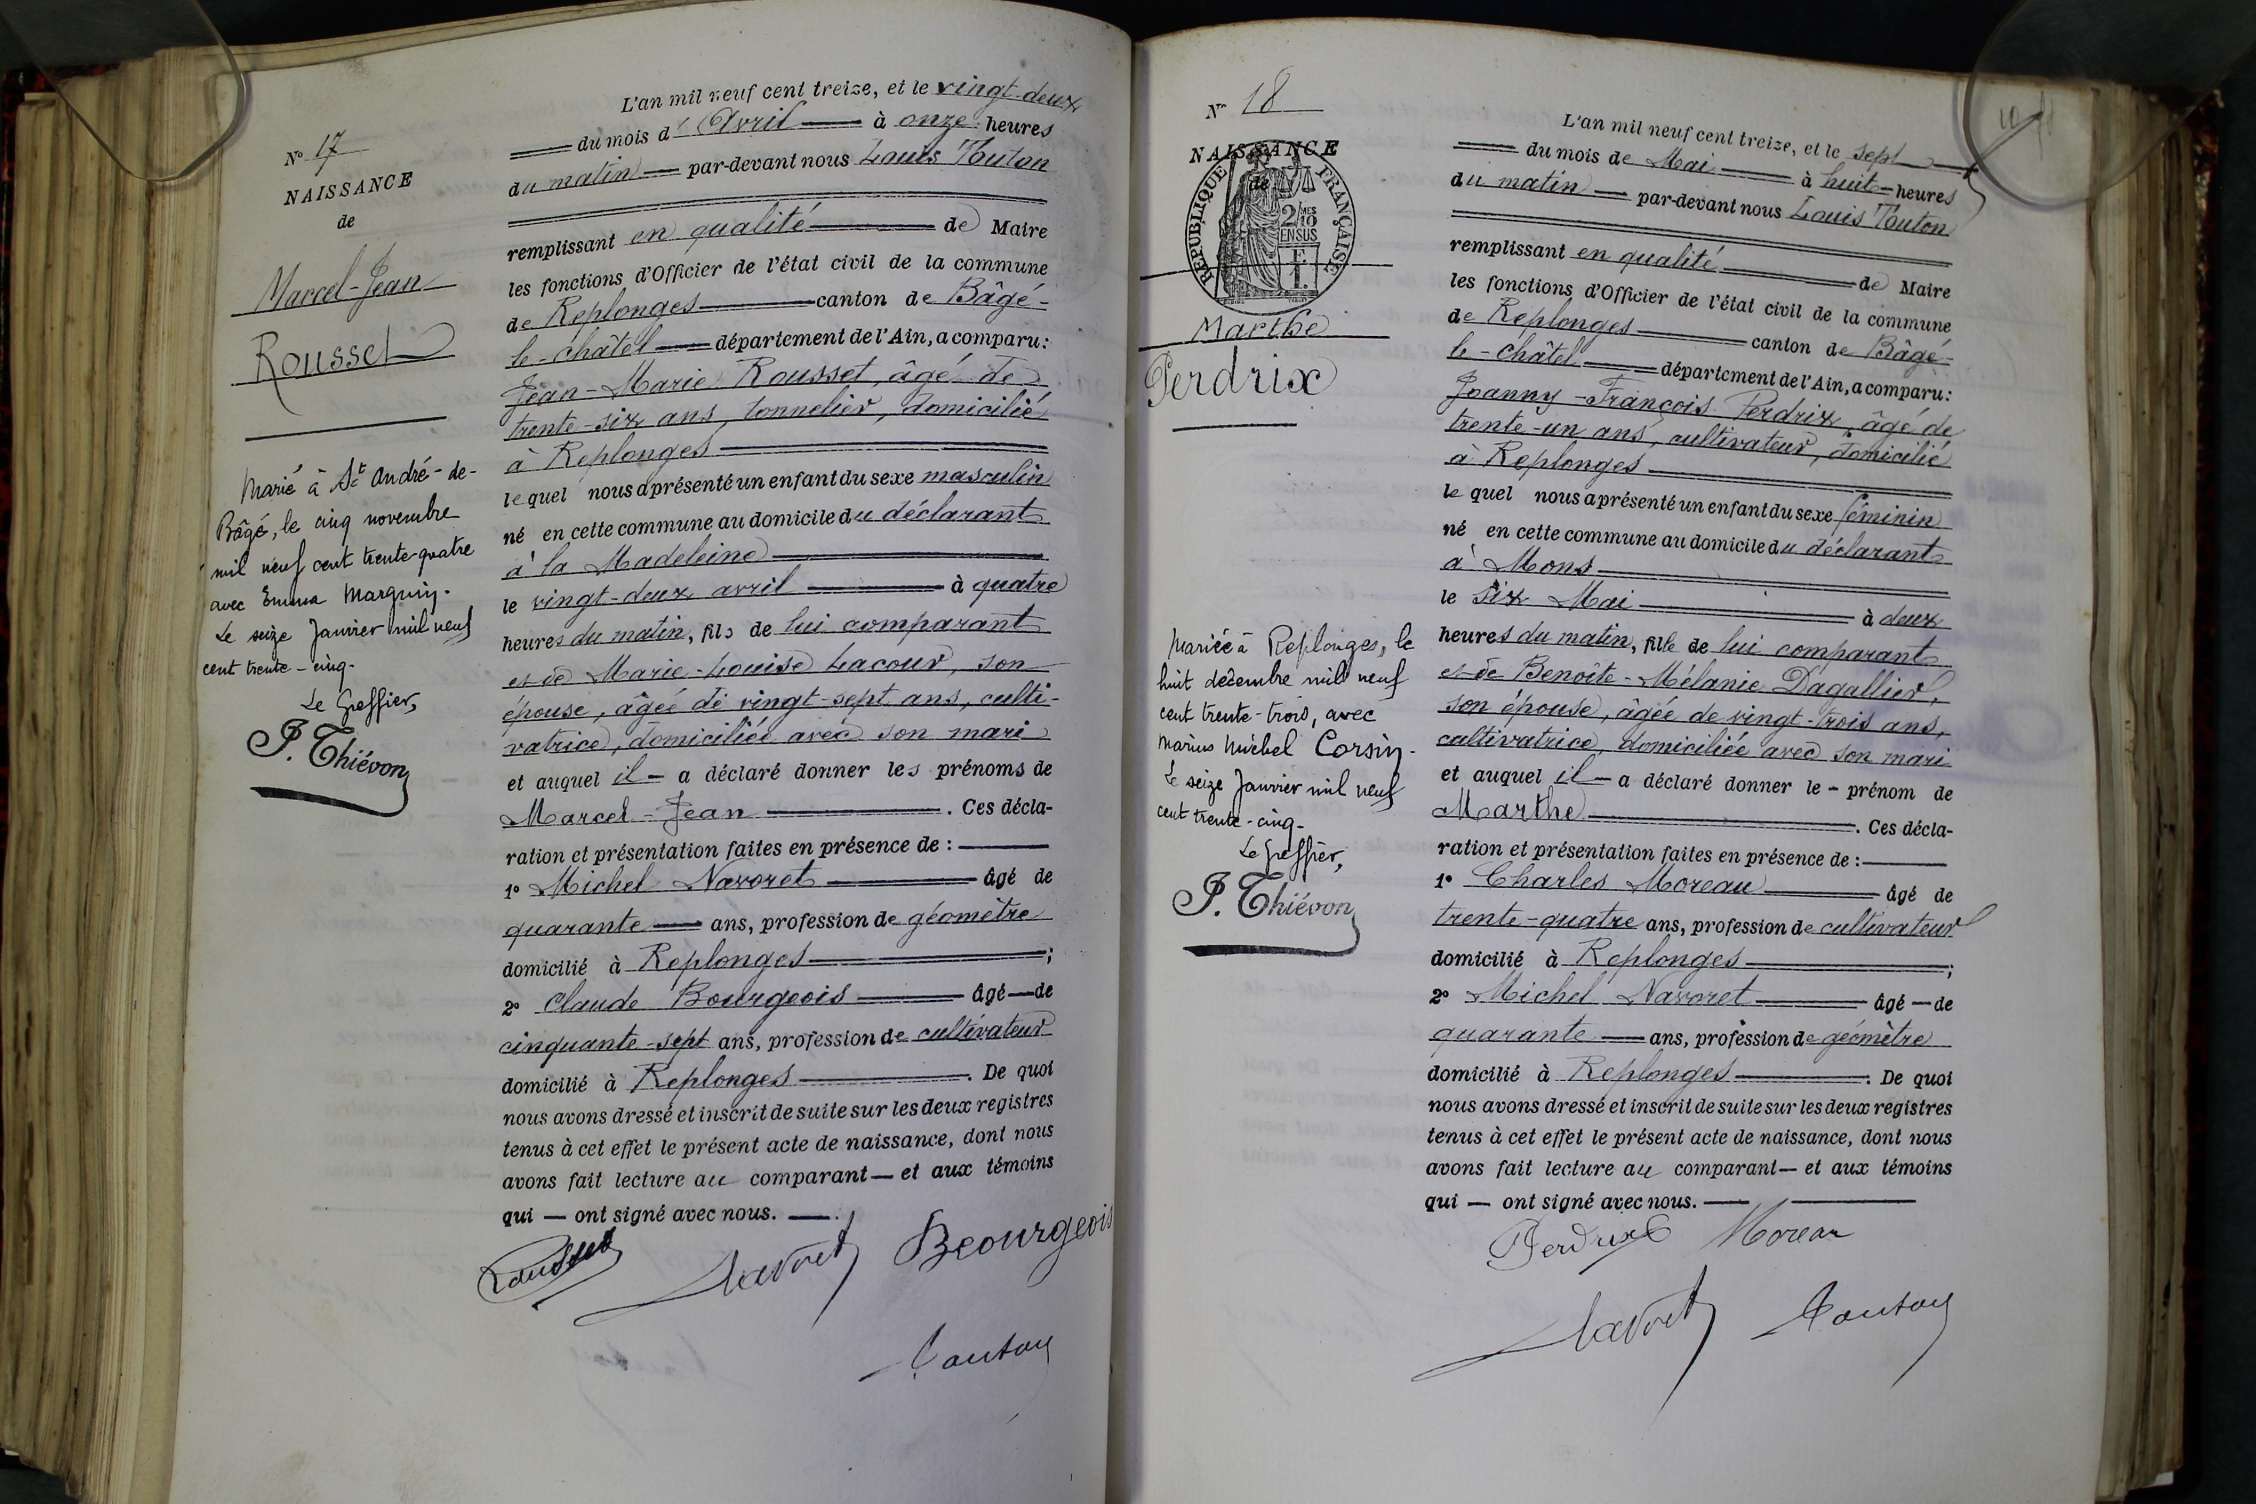 L'an mil neuf cent treize, et le vingt-deux
N° 17
du mois d'Avril à onze heures
NAISSANCE
du matin par-devant nous Louis Touton
de
remplissant en qualité de Maire
Marcel-Jean
les fonctions d'Officier de l'état civil de la commune
de Replonges canton de Bâgé-
Rousset
le-châtel département de l'Ain, a comparu :
Jean-Marie Rousset, âgé de
trente-six ans, tonnelier, domicilié
à Replonges
Marié à St André-de-
Bâgé, le cinq novembre
mil neuf cent trente-quatre
avec Emma Marguin.
Le seize Janvier mil neuf
cent trente-cinq.
Le Greffier,
P. Thiévon
lequel nous a présenté un enfant du sexe masculin
né en cette commune au domicile du déclarant
à la Madeleine
le vingt-deux avril à quatre
heures du matin, fils de lui comparant
et de Marie-Louise Lacour, son
épouse, âgée de vingt-sept ans, culti-
vatrice, domiciliée avec son mari
et auquel il a déclaré donner les prénoms de
Marcel-Jean. Ces décla-
ration et présentation faites en présence de :
1° Michel Navoret âgé de
quarante ans, profession de géomètre
domicilié à Replonges ;
2° Claude Bourgeois âgé de
cinquante-sept ans, profession de cultivateur
domicilié à Replonges. De quoi
nous avons dressé et inscrit de suite sur les deux registres
tenus à cet effet le présent acte de naissance, dont nous
avons fait lecture au comparant et aux témoins
qui ont signé avec nous.
Rousset Navoret Beourgeois
Touton
N° 18
NAISSANCE
de
RÉPUBLIQUE FRANÇAISE
2/10 MES
EN SUS
F.
1.
Marthe
Perdrix
Mariée à Replonges, le
huit décembre mil neuf
cent trente-trois, avec
Marius Michel Corsin.
Le seize Janvier mil neuf
cent trente-cinq.
Le Greffier,
P. Thiévon
L'an mil neuf cent treize, et le sept
du mois de Mai à huit heures
du matin par-devant nous Louis Touton
remplissant en qualité de Maire
les fonctions d'Officier de l'état civil de la commune
de Replonges canton de Bâgé-
le-châtel département de l'Ain, a comparu :
Joanny-François Perdrix, âgé de
trente-un ans, cultivateur, domicilié
à Replonges
lequel nous a présenté un enfant du sexe féminin
né en cette commune au domicile du déclarant
à Mons
le six Mai à deux
heures du matin, fille de lui comparant
et de Benoîte-Mélanie Dagallier,
son épouse, âgée de vingt-trois ans,
cultivatrice, domiciliée avec son mari
et auquel il a déclaré donner le prénom de
Marthe. Ces décla-
ration et présentation faites en présence de :
1° Charles Moreau âgé de
trente-quatre ans, profession de cultivateur
domicilié à Replonges ;
2° Michel Navoret âgé de
quarante ans, profession de géomètre
domicilié à Replonges. De quoi
nous avons dressé et inscrit de suite sur les deux registres
tenus à cet effet le présent acte de naissance, dont nous
avons fait lecture au comparant et aux témoins
qui ont signé avec nous.
Perdrix Moreau
Navoret Touton